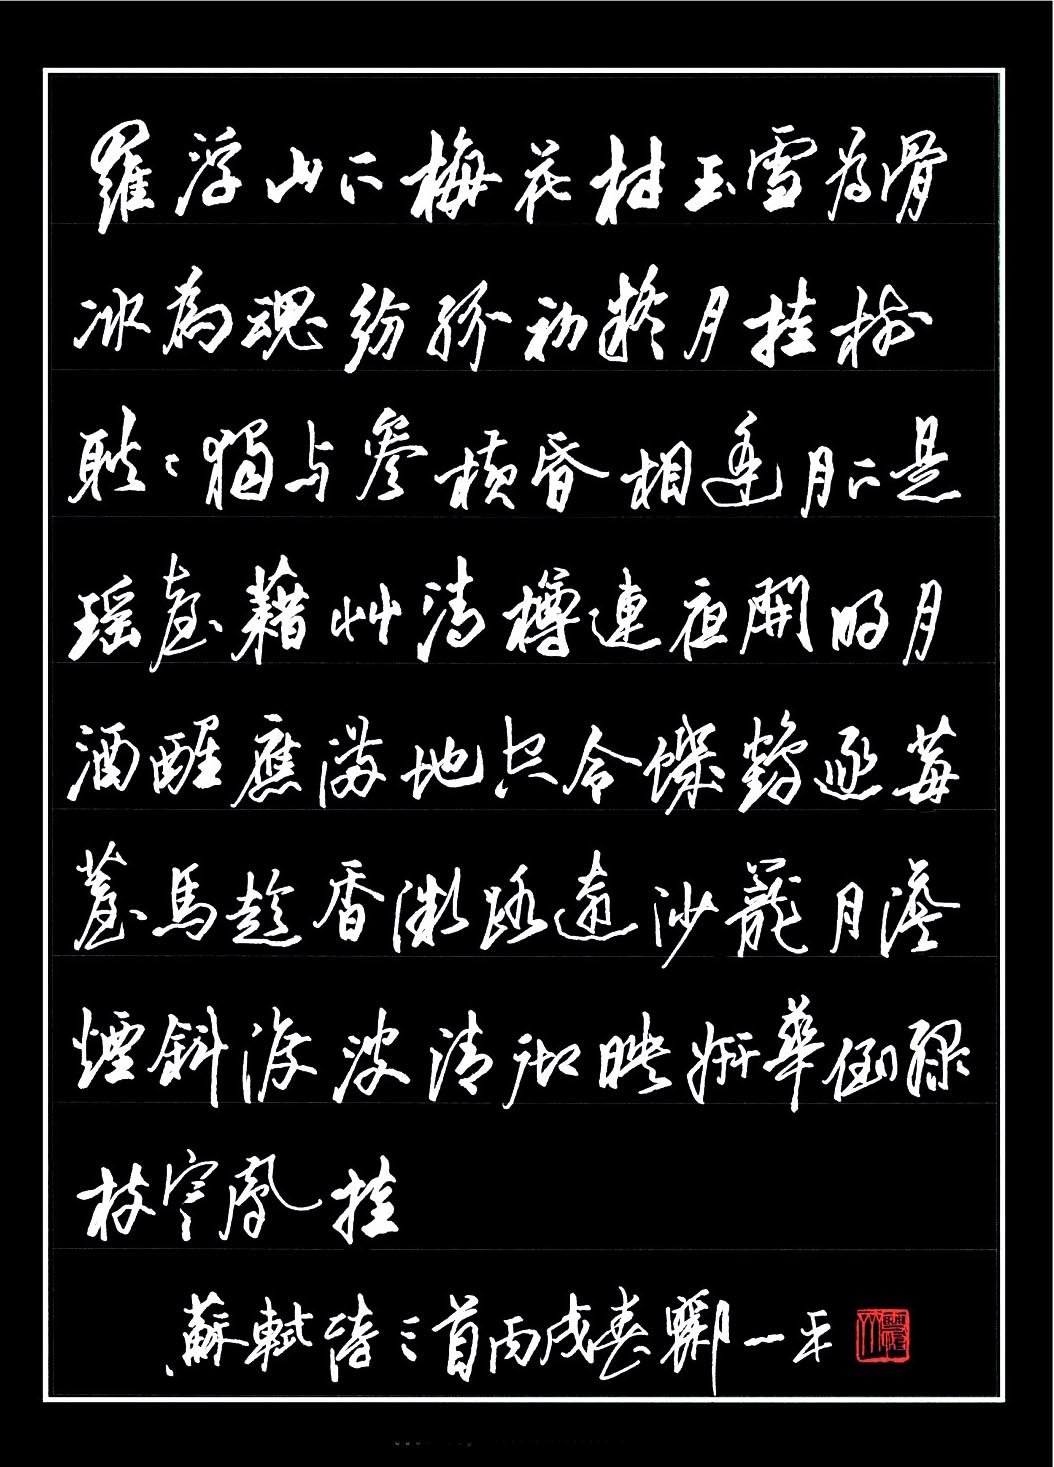 羅浮山下梅花村玉雪為骨
冰為魂紛紛初疑月挂樹
耿〻獨与參橫昏相逢月下是
瑤臺藉艸清樽連夜開明月
酒醒應滿地只令饑鶴逐莓
薹馬趁香微路遠沙籠月淡
煙斜渡波清映妍華倒綠
枝寒鳳挂
蘇軾詩三首丙戌春一平